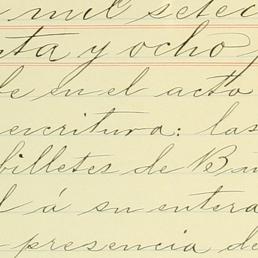 mil setec
nta y ocho
de en el acto
escritura: las
billetes de B
á su entera
presencia de